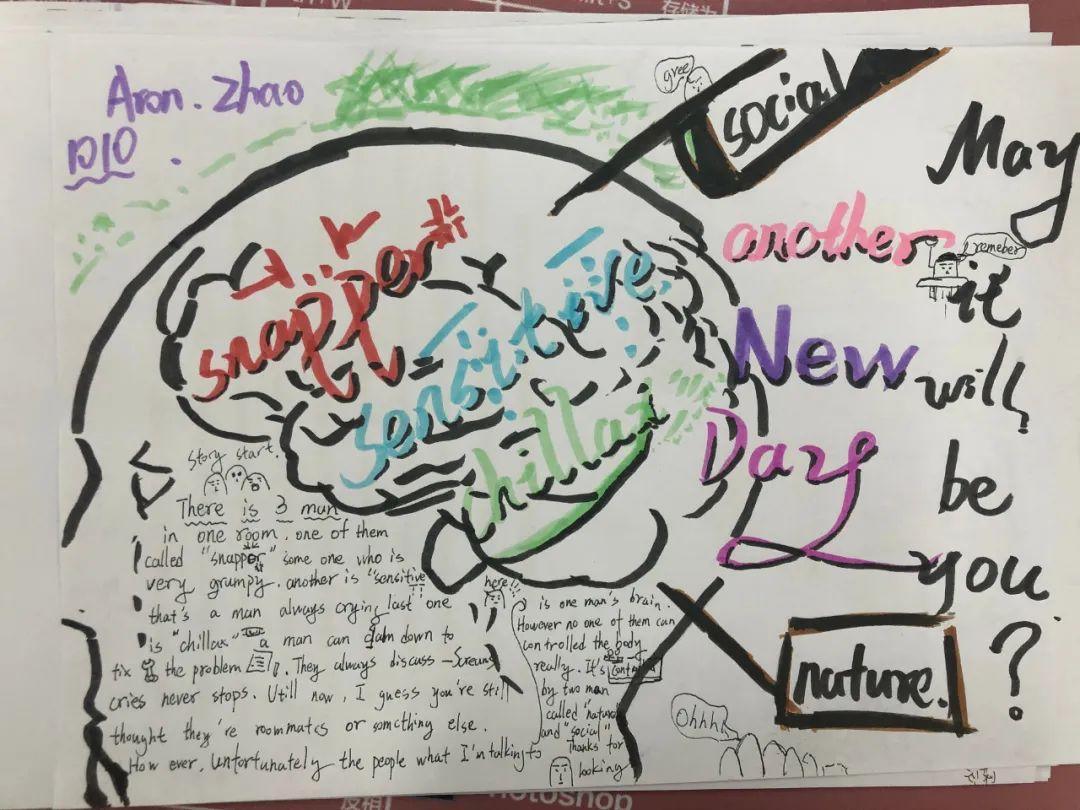 Aron. Zhao
1010
gree
social
May
another
I remeber
it
New
will
Day
be
you
?
nature.
snapper
sensitive
chillax
story start.
There is 3 man
in one room. one of them
called "snapper" some one who is
very grumpy. another is "sensitive"
that's a man always crying last one
is "chillax" a man can calm down to
fix the problem. They always discuss - Screams
cries never stops. Utill now, I guess you're still
thought they're roommates or something else.
How ever, Unfortunately the people what I'm talking to
here!!
is one man's brain.
However no one of them can
controlled the body
really. It's
by two man
called "nature"
and "social"
Thanks for
looking
Ohhh
存储为
反相
Photoshop